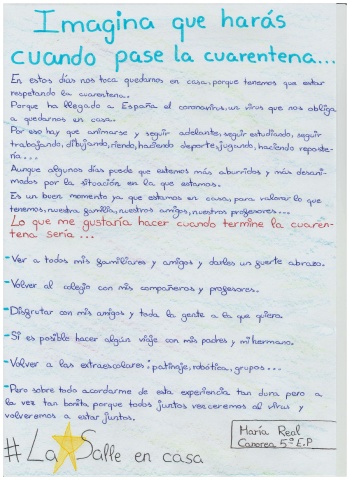 Imagina que harás
cuando pase la cuarentena...
En estos días nos toca quedarnos en casa, porque tenemos que estar
respetando la cuarentena.
Porque ha llegado a España el coronavirus, un virus que nos obliga
a quedarnos en casa.
Por eso hay que animarse y seguir adelante, seguir estudiando, seguir
trabajando, dibujando, riendo, haciendo deporte, jugando, haciendo reposte-
ría...
Aunque algunos días puede que estemos más aburridos y más desani-
mados por la situación en la que estamos.
Es un buen momento ya que estamos en casa, para valorar lo que
tenemos, nuestra familia, nuestros amigos, nuestros profesores...
Lo que me gustaría hacer cuando termine la cuaren-
tena sería...
-Ver a todos mis familiares y amigos y darles un fuerte abrazo.
-Volver al colegio con mis compañeros y profesores.
-Disfrutar con mis amigos y toda la gente a la que quiero.
-Si es posible hacer algún viaje con mis padres y mi hermano.
-Volver a las extraescolares: patinaje, robótica, grupos...
-Pero sobre todo acordarme de esta experiencia tan dura pero a
la vez tan bonita porque todos juntos venceremos al virus y
volveremos a estar juntos.
María Real
Canorea 5º E.P
#La Salle en casa